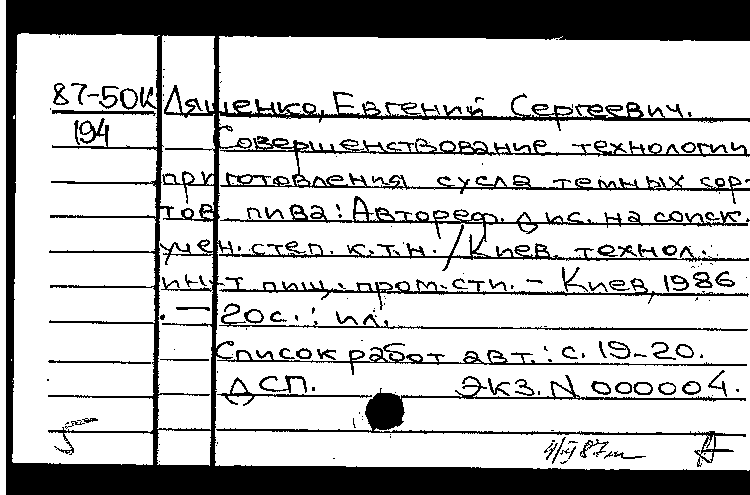 87-50К Ляшенко, Евгений Сергеевич.
194 Совершенствование технологии
приготовления сусла темных сор-
тов пива: Автореф. дис. на соиск.
учен. степ. к.т.н. / Киев. технол.
ин-т пищ. пром-сти. - Киев, 1986
. - 20с.: ил.
Список работ авт.: с. 19-20.
ДСП. Экз. N 000004.
5